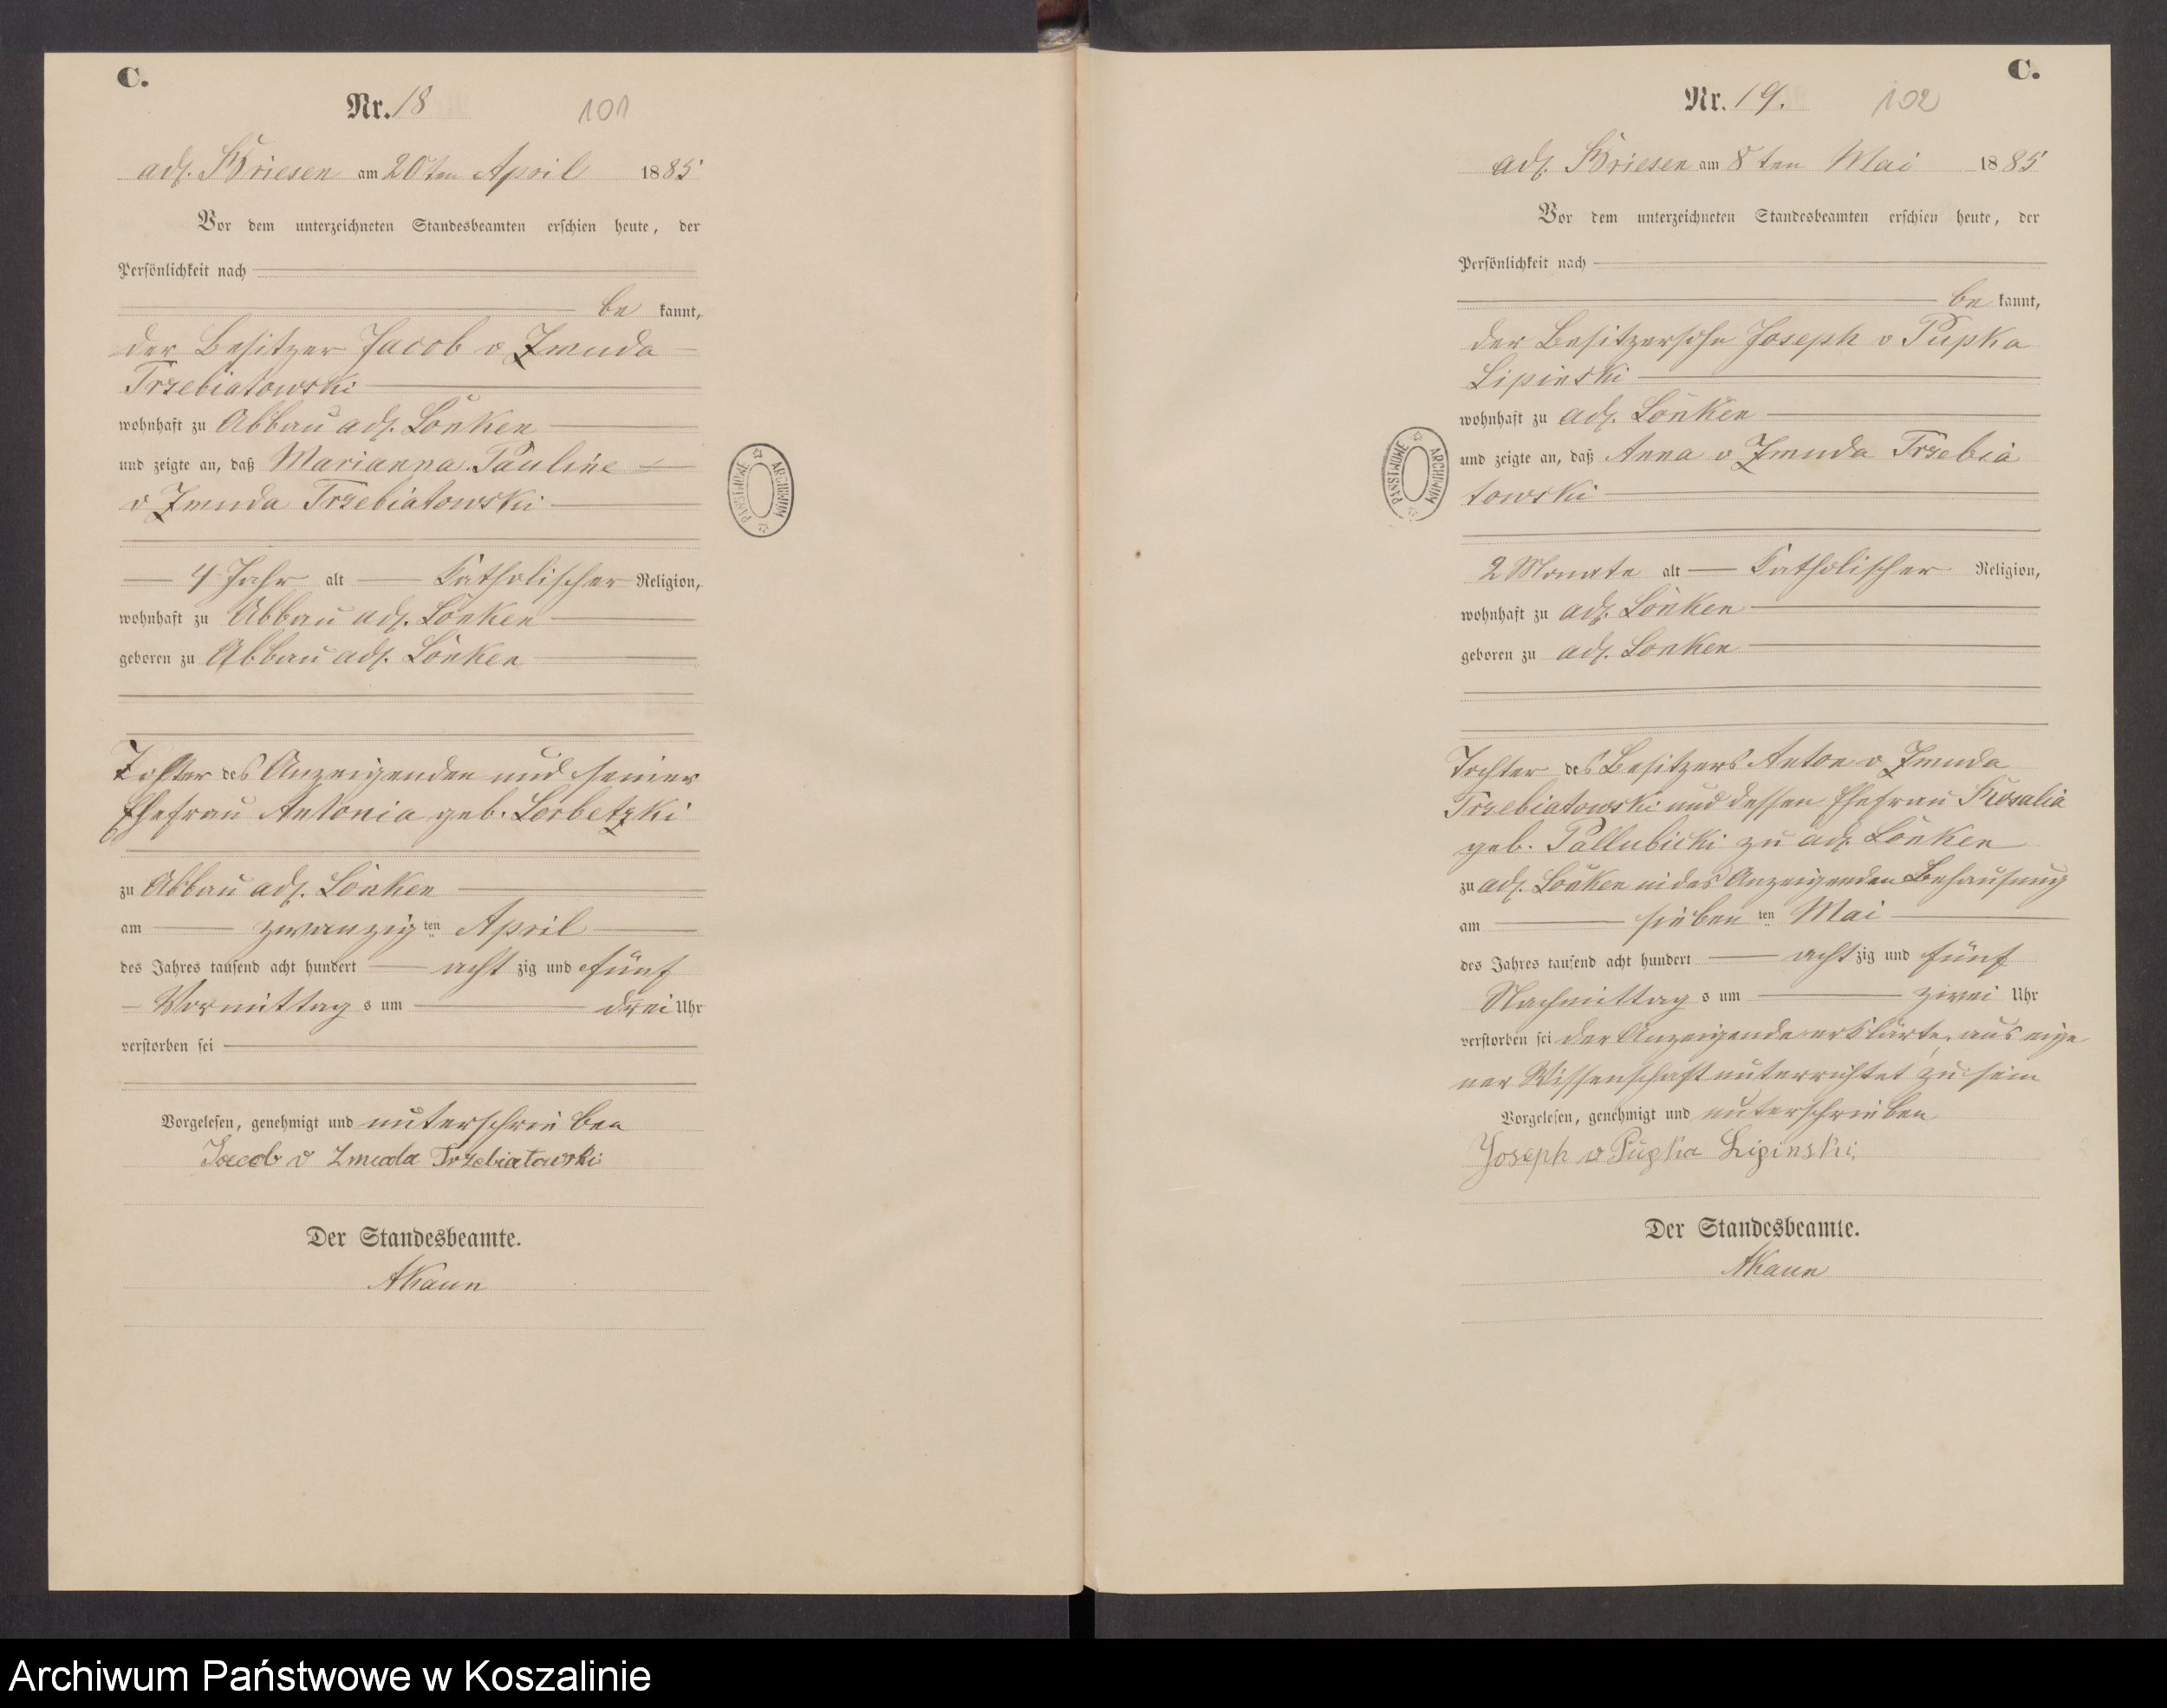 C.
Nr. 18
101
adl. Briesen am 20ten April 1885
Vor dem unterzeichneten Standesbeamten erschien heute, der
Persönlichkeit nach
be kannt,
der Besitzer Jacob v Zmuda
Trzebiatowski
wohnhaft zu Abbau adl. Lonken
und zeigte an, daß Marianna Pauline
v Zmuda Trzebiatowski
4 Jahr alt Katholischer Religion,
wohnhaft zu Abbau adl. Lonken
geboren zu Abbau adl. Lonken
Tochter des Anzeigenden und seiner
Ehefrau Antonia geb. Lorbetzki
zu Abbau adl. Lonken
am zwanzig ten April
des Jahres tausend acht hundert acht zig und fünf
Vormittag s um drei Uhr
verstorben sei
Vorgelesen, genehmigt und unterschrieben
Jacob v Zmuda Trzebiatowski
Der Standesbeamte.
AKaun
PAŃSTWOWE ARCHIWUM
C.
Nr. 19.
102
adl. Briesen am 8ten Mai 1885
Vor dem unterzeichneten Standesbeamten erschien heute, der
Persönlichkeit nach
be kannt,
der Besitzersohn Joseph v Pupka
Lipinski
wohnhaft zu adl. Lonken
und zeigte an, daß Anna v Zmuda Trzebia
towski
2 Monate alt Katholischer Religion,
wohnhaft zu adl. Lonken
geboren zu adl. Lonken
Tochter des Besitzers Anton v Zmuda
Trzebiatowski und dessen Ehefrau Rosalia
geb. Pallubicki zu adl. Lonken
zu adl. Lonken in des Anzeigenden Behausung
am sieben ten Mai
des Jahres tausend acht hundert acht zig und fünf
Nachmittag s um zwei Uhr
verstorben sei der Anzeigende erklärte, aus eige
ner Wissenschaft unterrichtet zu sein
Vorgelesen, genehmigt und unterschrieben
Joseph v Pupka Lipinski
Der Standesbeamte.
AKaun
PAŃSTWOWE ARCHIWUM
Archiwum Państwowe w Koszalinie